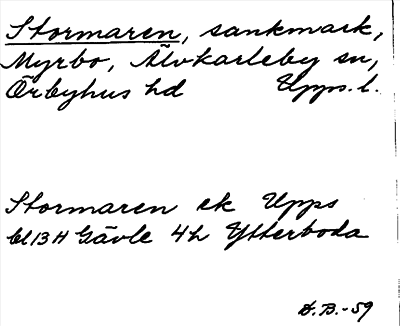 Stormaren, sankmark,
Myrbo, Älvkarleby sn,
Örbyhus hd Upps. l.
Stormaren ek Upps
bl 13 H Gävle 4h Ytterboda
D.B.-59